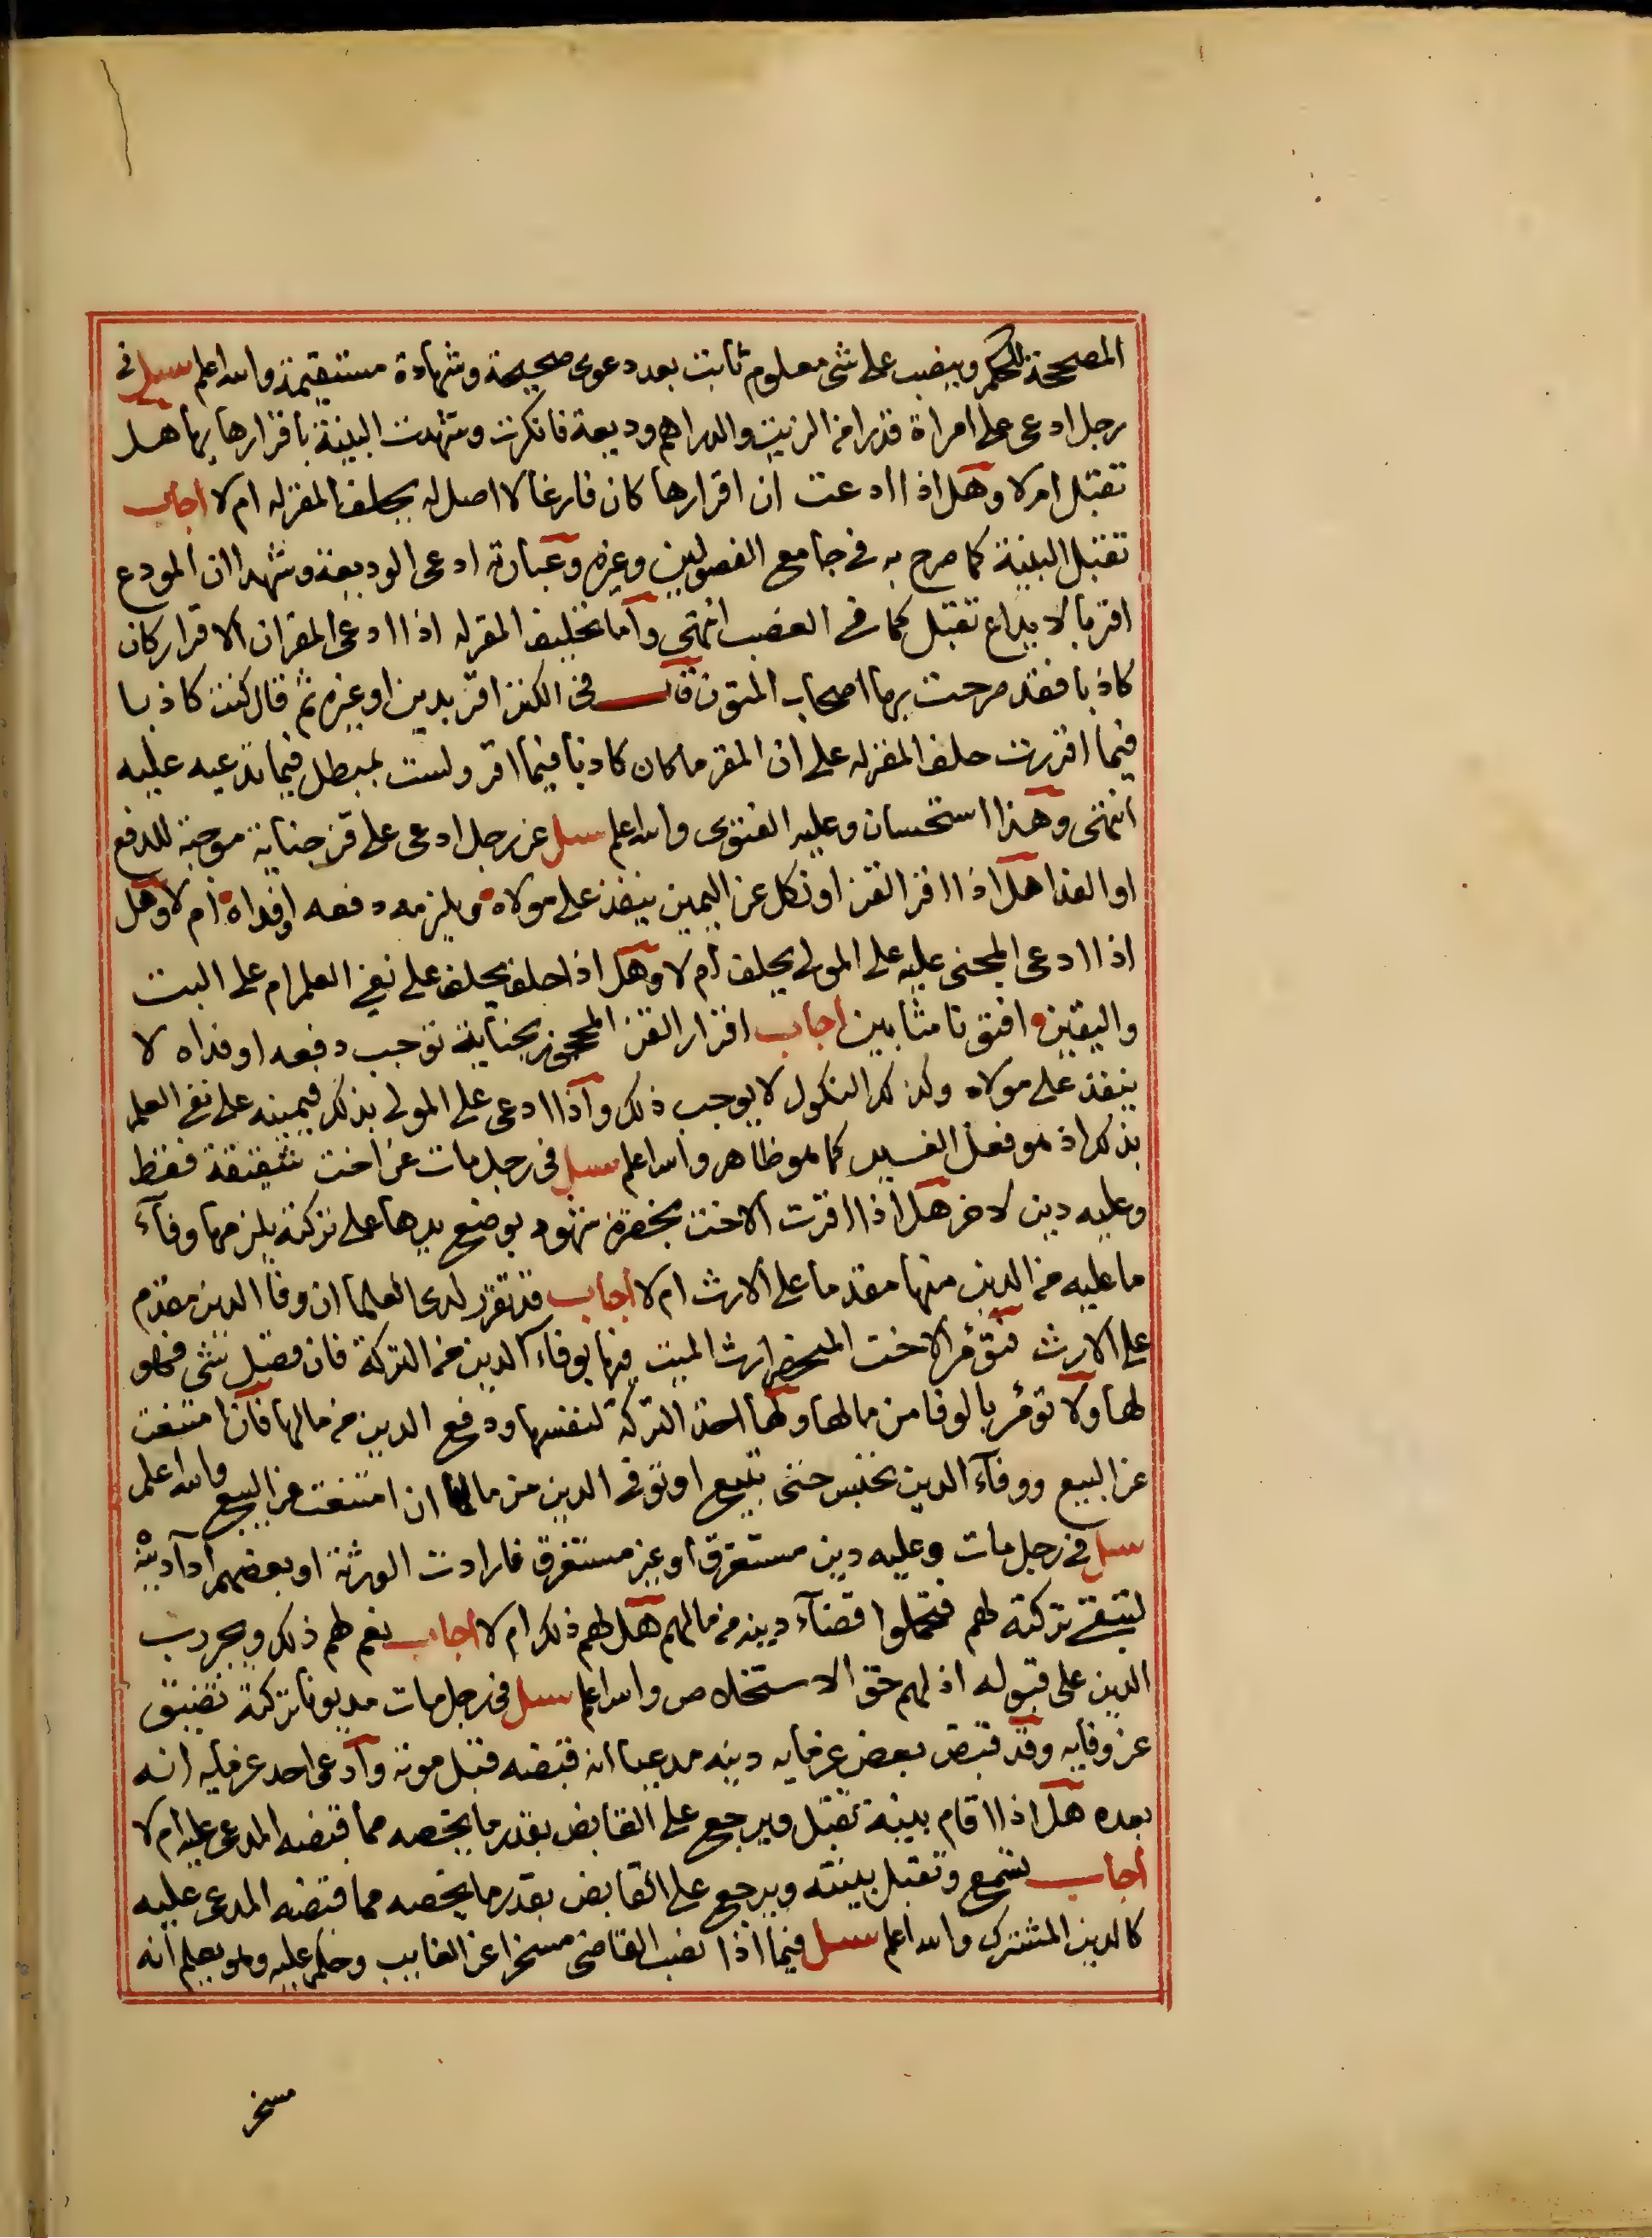 المصححة للحكم وينصب على شى معلوم ثابت بعد دعوى صحيحة وشهادة مستقيمة والله اعلم سيل فى
رجل ادعى على امراة قدرا من الزيت والدراهم وديعة فانكرت وشهدت البينة باقرارها بها هل
تقبل ام لا وهل اذا ادعت ان اقرارها كان فارغا لا اصل له يحلف المقر له ام لا اجاب
تقبل البينة كما صرح به في جامع الفصولين وغيره وعبارته ادعى الوديعة وشهدا ان المودع
اقر بالايداع تقبل كما في الغصب انتهى واما تحليف المقر له اذا ادعى المقر ان الاقرار كان
كاذبا فقد صرحت بها اصحاب المتون قال في الكنز اقر بدين او غيره ثم قال كنت كاذبا
فيما اقررت حلف المقر له على ان المقر ما كان كاذبا فيما اقر ولست بمبطل فيما تدعيه عليه
انتهى وهذا استحسان وعليه الفتوى والله اعلم سيل عن رجل ادعى على قن جناية موجبة للدفع
او الفدا هل اذا اقر القن او نكل عن اليمين ينفذ على مولاه ويلزمه دفعه او فداه ام لا وهل
اذا ادعى المجنى عليه على المولى يحلف ام لا وهل اذا حلف يحلف على نفي العلم ام على البت
واليقين افتونا مثابين اجاب اقرار القن المحجوز بجناية توجب دفعه او فداه لا
ينفذ على مولاه وكذلك النكول لا يوجب ذلك واذا ادعى على المولى بذلك فيمينه على نفي العلم
بذلك اذ هو فعل الغير كما هو ظاهر والله اعلم سيل فى رجل مات عن اخت شقيقة فقط
وعليه دين لاخر هل اذا اقرت الاخت بحضرة شهود بوضع يدها على تركته يلزمها وفآء
ما عليه من الدين منها مقدما على الارث ام لا اجاب قد تقرر لدى العلما ان وفا الدين مقدم
على الارث فتؤمر الاخت المنحصر ارث الميت فيها بوفاء الدين من التركة فان فضل شى فهو
لها ولا تؤمر بالوفا من مالها ولها اخذ التركة لنفسها ودفع الدين من مالها فان امتنعت
عن البيع ووفآء الدين تحبس حتى تبيع او توفي الدين من مالها ان امتنعت عن البيع والله اعلم
سيل في رجل مات وعليه دين مستغرق او غير مستغرق فارادت الورثة او بعضهم ادآ دينه
لتبقى تركته لهم فتحملوا قضآء دينه من مالهم هل لهم ذلك ام لا اجاب نعم لهم ذلك ويجبر رب
الدين على قبوله اذ لهم حق الاستخلاص والله اعلم سيل فى رجل مات مديونا تركته تضيق
عن وفايه وقد قبض بعض غرمايه دينه مدعيا انه قبضه قبل موته وادعى احد غرمايه انه
بعده هل اذا اقام بينة تقبل ويرجع على القابض بقدر ما يخصه مما قبضه المدعى عليه ام لا
اجاب تسمع وتقبل بينته ويرجع على القابض بقدر ما يخصه مما قبضه المدعى عليه
كالدين المشترك والله اعلم سيل فيما اذا نصب القاضى مسخرا عن الغايب وحكم عليه وهو يعلم انه
مسخر